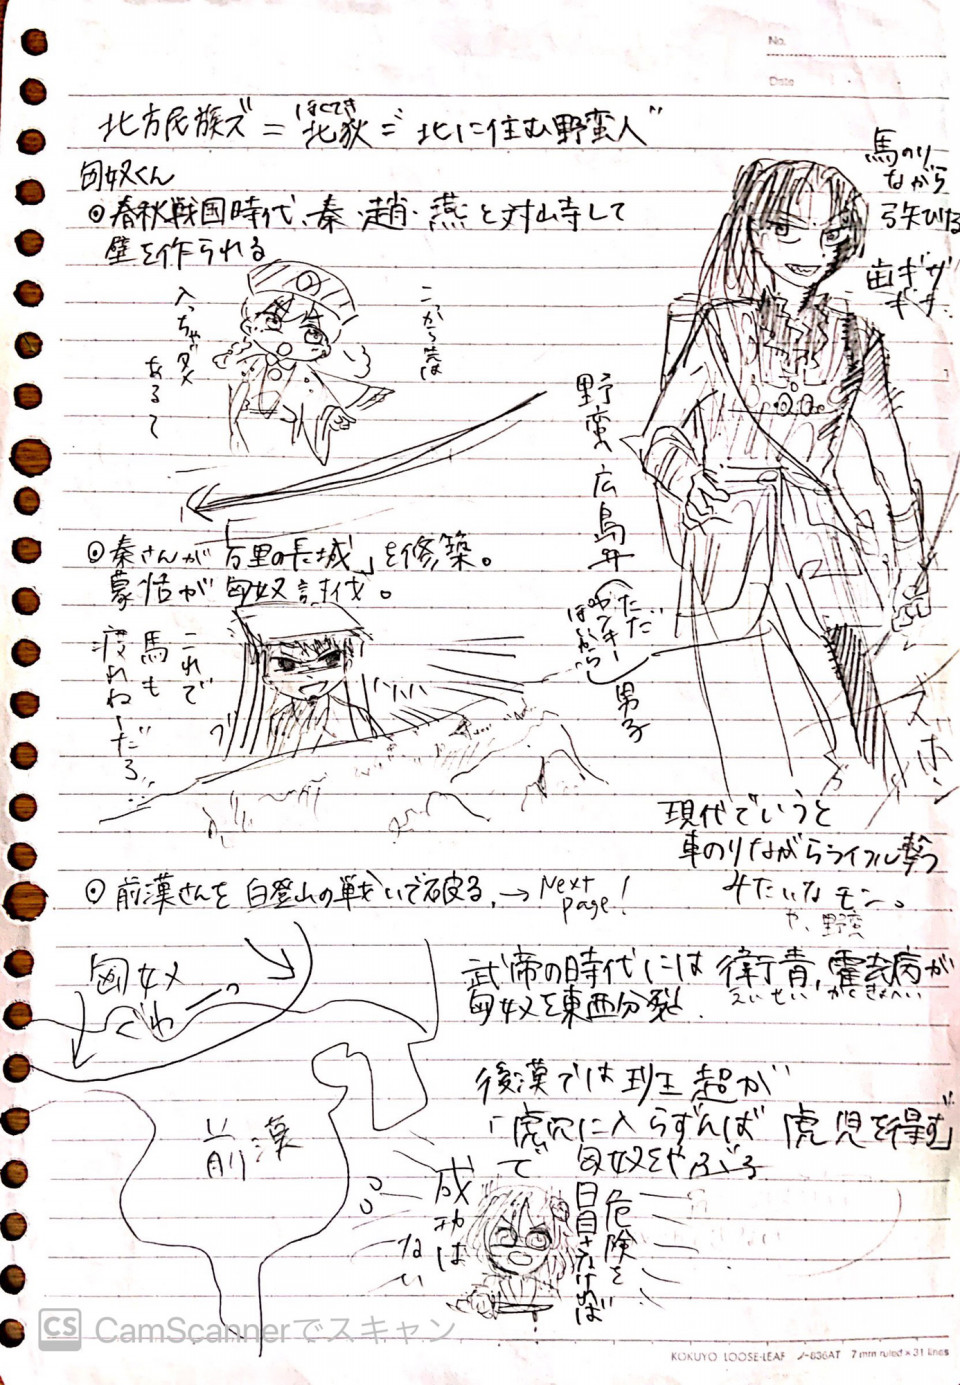 No.
Date
北方民族ズ="北狄="北に住む野蛮人"
ほくてき
匈奴くん
◎春秋戦国時代、秦・趙・燕と対峙して
壁を作られる
馬のり
ながら
弓矢ひける
歯ギザ
ギザ
こっから先は
入っちゃダメ
あるて
野蛮広島弁(ただヤンキーぽいから)男子
◎秦さんが「万里の長城」を修築。
蒙恬が匈奴討伐。
これで
馬も
渡れねーだろ…
現代でいうと
車のりながらライフル撃つ
みたいなモン。
や、野蛮
◎前漢さんを白登山の戦いで破る。→Next
page!
匈奴
ぐわーっ
前漢
武帝の時代には衛青,霍去病が
えいせい かくきょへい
匈奴を東西分裂に
後漢では班超が
「虎穴に入らずんば虎児を得ず」
で匈奴をやぶる
危険を
目さなければ
成功は
ない
CS CamScannerでスキャン
KOKUYO LOOSE-LEAF ノ-836AT 7 mm ruled × 31 lines